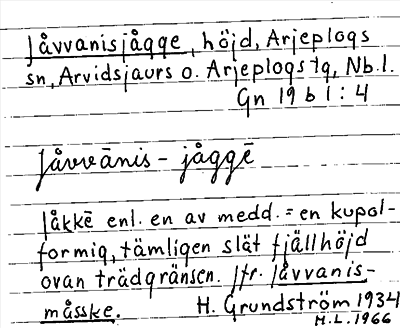 Jåvvanisjågge, höjd, Arjeplogs
sn, Arvidsjaurs o. Arjeplogs tg, Nb.l.
Gn 19 b 1 : 4
Jåvvānis – jåggē
Jåkkē enl. en av medd. = en kupol-
formig, tämligen slät fjällhöjd
ovan trädgränsen. Jfr. Jåvvanis-
måsske. H. Grundström 1934
M.L. 1966